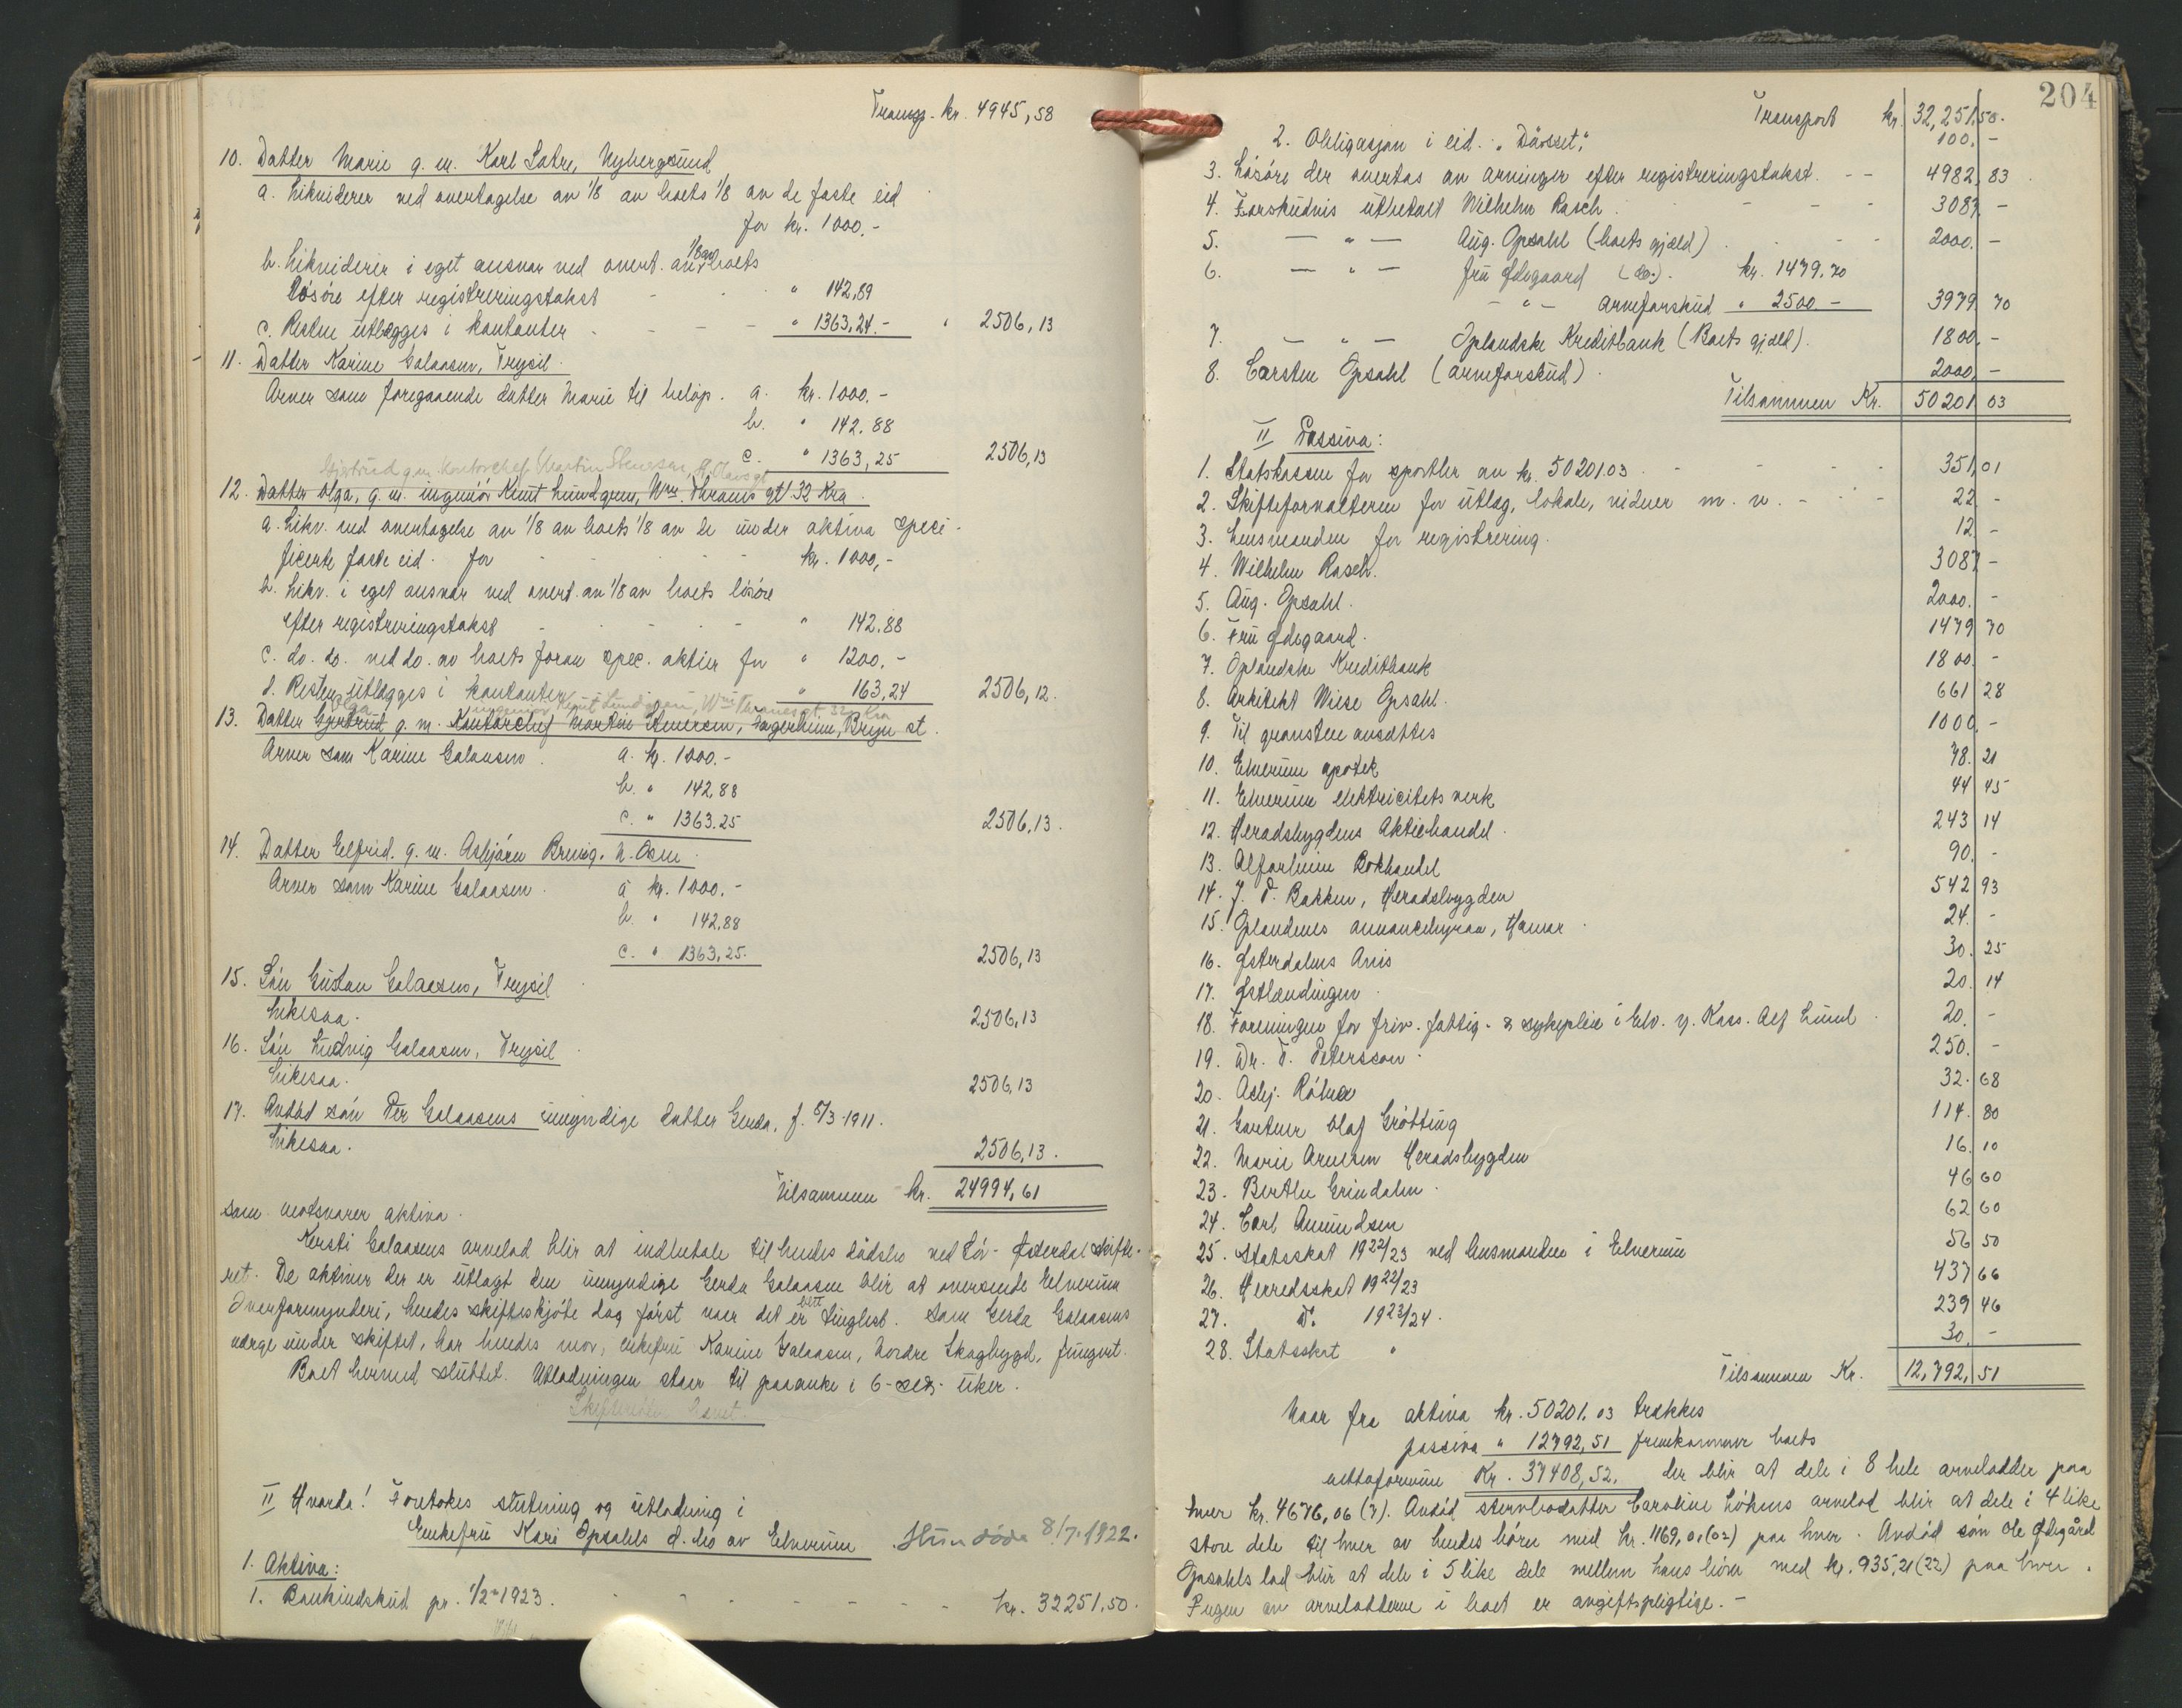 Transp. kr. 4945,58
10. Datter Marie g. m. Karl Sætre, Nybergsund
a. Likviderer ved overtagelse av 1/8 av boets 1/8 av de faste eid
for kr. 1000.-
b. Likviderer i eget ansvar ved overt. av 1/8 av boets
løsøre efter registreringstakst - " 142,89
c. Resten utlægges i kontanter - - - " 1363,24.- " 2506,13
11. Datter Karine Galaasen, Trysil.
Arver som foregaaende datter Marie til beløp. a. kr. 1000.-
b. " 142.88
c. " 1363,25 2506,13
Gjertrud g.m. Kontorchef Martin Stenersen, St. Olavsgt
12. Datter Olga, g. m. ingeniør Knut Lundgren, Wm. Thranes gt 32 Kra.
a. Likv. ved overtagelse av 1/8 av boets 1/8 av de under aktiva speci-
ficerte faste eid. for - - - - kr. 1000,-
b. Likv. i eget ansvar ved overt. av 1/8 av boets løsøre
efter registreringstakst - - - - " 142.88
c. do. do. ved do. av boets foran spec. aktier for " 1200.-
d. Resten utlægges i kontanter " 163,24 2506,12.
Olga ingeniør Knut Lundgren, Wm Thranesgt. 32 Kra
13. Datter Gjertrud g. m. Kontorchef Martin Stenersen, Hagerheim, Bryn st.
Arver som Karine Galaasen. a. kr. 1000.-
b. " 142,88
c. " 1363.25 2506,13.
14. Datter Elfrid. g. m. Asbjørn Brenig. N. Osen.
Arver som Karine Galaasen. a kr. 1000.-
b. " 142,88
c. " 1363,25. 2506,13
15. Søn Gustav Galaasen, Trysil
Likesaa. 2506,13
16. Søn Ludvig Galaasen, Trysil
Likesaa. 2506,13
17. Avdød søn Per Galaasens umyndige datter Gerda, f. 5/3-1911.
Likesaa. 2506,13.
Tilsammen kr. 24994,61
som motsvarer aktiva.
Kersti Galaasens arvelod blir at indbetale til hendes dødsbo ved Sør-Østerdal skifte-
ret. De aktiver der er utlagt den umyndige Gerda Galaasen blir at oversende Elverum
Overformynderi, hendes skifteskjøte dog først naar det er blit tinglest. Som Gerda Galaasens
værge under skiftet, har hendes mor, enkefru Karine Galaasen, Nordre Skagbygd, fungert.
Boet hermed sluttet. Utlodningen staar til paaanke i 6-seks uker.
Skifteretten hævet.
II Hvorda! Foretokes slutning og utlodning i
Enkefru Kari Opsahls d. bo av Elverum. Hun døde 8/7. 1922.
1. Aktiva:
1. Bankindskud pr. 1/2-1923. - - - - - kr. 32251,50.
204
Transport kr. 32,251,50.
2. Obligasjon i eid. "Dåsset", 100.-
3. Løsøre der overtas av arvinger efter registreringstakst. - - 4982,83.
4. Forskudvis utbetalt Wilhelm Rasch. - - - 3087.-
5. — " — Aug. Opsahl (boets gjæld). - - - 2000.-
6. — " — fru Ødegaard (do.). kr. 1479.70
- " - arveforskud " 2500.- 3979 70
7. — " — Oplandske Kreditbank (Boets gjæld). 1800.-
8. Carsten Opsahl (arveforskud). 2000.-
Tilsammen Kr. 50201 03
II Passiva:
1. Statskassen for sportler av kr. 50201.03 - - - - 351,01
2. Skifteforvalteren for utlæg, lokale, vidner m. v. - - - 22.-
3. Lensmanden for registrering. 12.-
4. Wilhelm Rasch. 3087 -
5. Aug. Opsahl. 2000.-
6. Fru Ødegaard. 1479 70
7. Oplandske Kreditbank 1800.-
8. Arkitekt Wiese Opsahl. 661 28
9. Til gravsten avsættes 1000.-
10. Elverum apotek 78. 21
11. Elverum elektricitetsverk 44 45
12. Heradsbygdens Aktiehandel. 243 14
13. Alfarheim Bokhandel 90.-
14. J. P. Bakken, Heradsbygden 542 93
15. Oplandenes annoncebyraa, Hamar. 24.-
16. Østerdalens Avis 30. 25
17. Østlendingen. 20. 14
18. Foreningen for friv. fattig- & sykepleie i Elv. v. Kass. Alf Lund. 20.-
19. Dr. T. Petersson. 250.-
20. Asbj. 32. 68
21. Gartner Olaf Grøtting 114. 80
22. Marie Arnesen Heradsbygden 16. 10
23. Berthe Grindalen. 46 60
24. Carl Amundsen 62 60
25. Statsskat 1922/23 ved lensmanden i Elverum 56 50
26. Herredsskat 1922/23 437 66
27. Do. 1923/24. 239 46
28. Statsskat " 30.-
Tilsammen Kr. 12,792,51
Naar fra aktiva kr. 50201.03 trækkes
passiva " 12792,51 fremkommer boets
nettoformue Kr. 37408,52. der blir at dele i 8 hele arvelodder paa
hver kr. 4676,06 (7). Avdød stervbodatter Caroline Løkens arvelod blir at dele i 4 like
store dele til hver av hendes børn med kr. 1169,01(02) paa hver. Avdød søn Ole Ødegård
Opsahls lod blir at dele i 5 like dele mellem hans børn med kr. 935,21(22) paa hver.
Ingen av arvelodderne i boet er avgiftspligtige.-